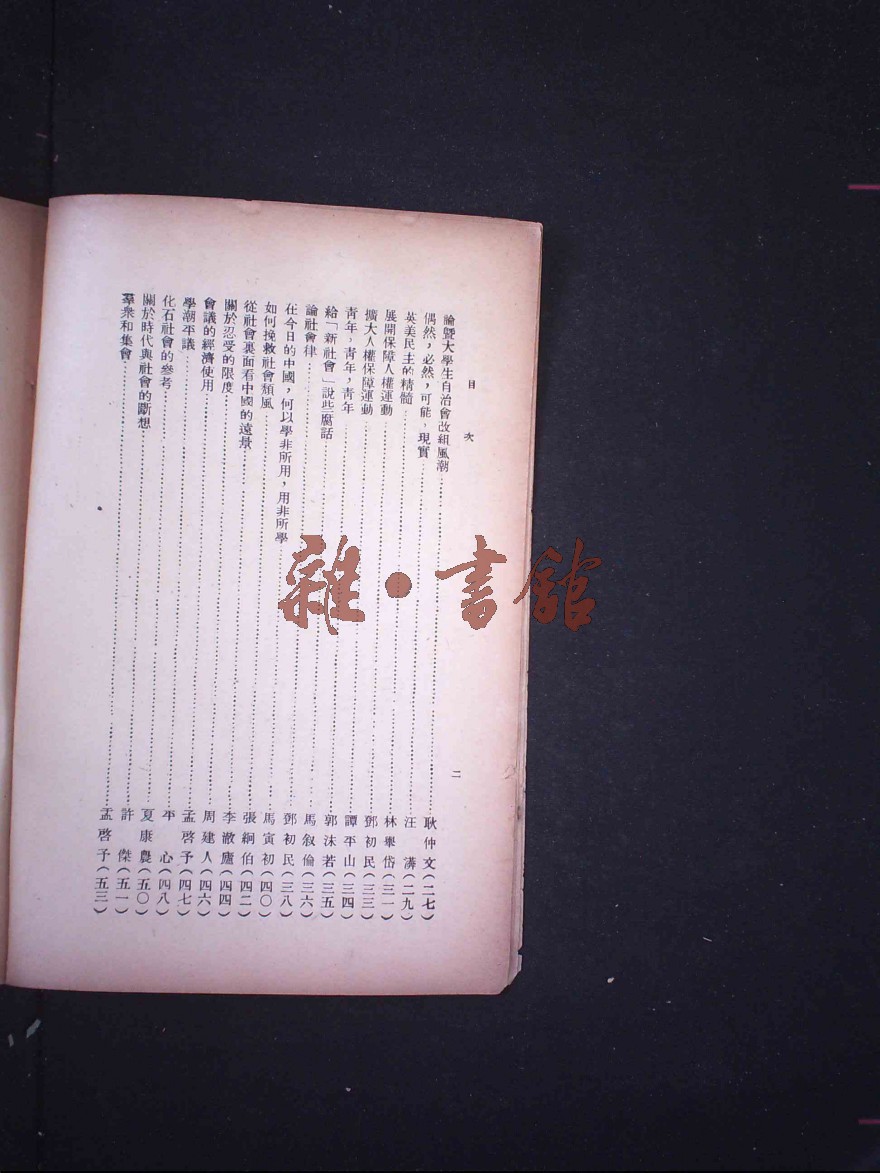 目次
二
論暨大學生自治會改組風潮……耿仲文(二七)
偶然，必然，可能，現實……汪　澫(二九)
英美民主的精髓……林舉岱(三一)
展開保障人權運動……鄧初民(三三)
擴大人權保障運動……譚平山(三四)
青年，青年，青年……郭沫若(三五)
給「新社會」說些腐話……馬叙倫(三六)
論社會律……鄧初民(三八)
在今日的中國，何以學非所用，用非所學……馬寅初(四〇)
如何挽救社會頹風……張絅伯(四二)
從社會裏面看中國的遠景……李澈廬(四四)
關於忍受的限度……周建人(四六)
會議的經濟使用……孟啓予(四七)
學潮平議……平　心(四八)
化石社會的參考……夏康農(五〇)
關於時代與社會的斷想……許　傑(五一)
羣衆和集會……孟啓子(五三)
雜·書館